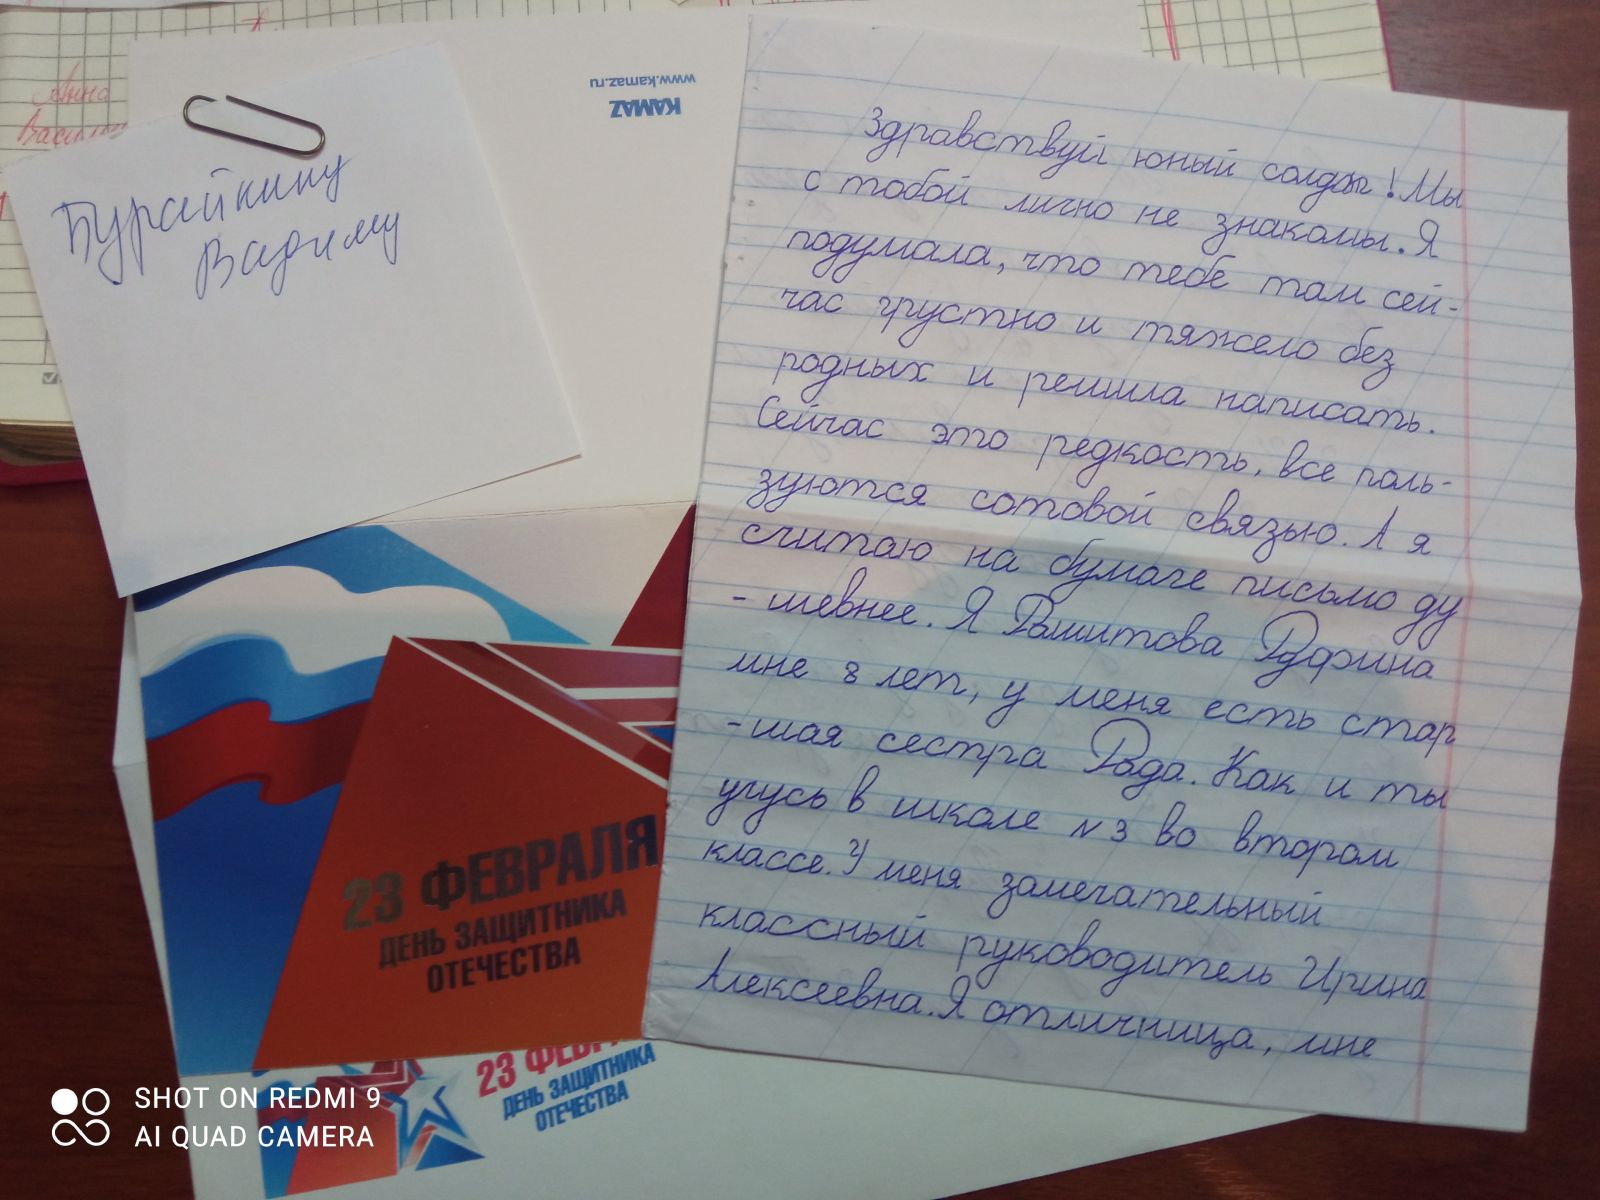 Анна
Бурайкину
Вадиму
www.kamaz.ru
KAMAZ
Здравствуй юный солдат! Мы
с тобой лично не знакомы. Я
подумала, что тебе там сей-
час грустно и тяжело без
родных и решила написать.
Сейчас это редкость, все поль-
зуются сотовой связью. А я
считаю на бумаге письмо ду
- шевнее. Я Рашитова
мне 8 лет, у меня есть стар
- шая сестра Рада. Как и ты
учусь в школе №3 во втором
классе. У меня замечательный
классный руководитель Ирина
Алексеевна. Я отличница, мне
23 ФЕВРАЛЯ
ДЕНЬ ЗАЩИТНИКА
ОТЕЧЕСТВА
23 ФЕВРА
ДЕНЬ ЗАЩИТНИКА
ОТЕЧЕСТВА
SHOT ON REDMI 9
AI QUAD CAMERA